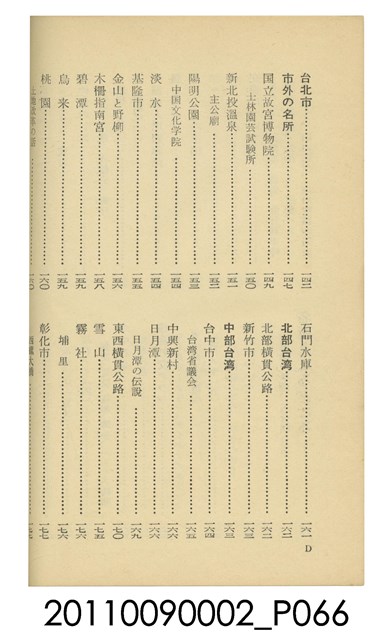 台北市……一四二
市外の名所……一四七
国立故宮博物院……一四九
士林園芸試験所……一五〇
新北投温泉……一五一
主公廟……一五二
陽明公園……一五三
中国文化学院……一五四
淡水……一五五
基隆市……一五五
金山と野柳……一五六
木柵指南宮……一五八
碧潭……一五九
烏来……一五九
桃園……一六〇
石門水庫……一六一
北部台湾……一六二
北部横貫公路……一六二
新竹市……一六三
中部台湾……一六三
台中市……一六四
台湾省議会……一六五
中興新村……一六六
日月潭……一六六
日月潭の伝説……一六九
東西横貫公路……一七〇
雪山……一七五
霧社……一七六
埔里……一七六
彰化市……一七七
D
20110090002_P066